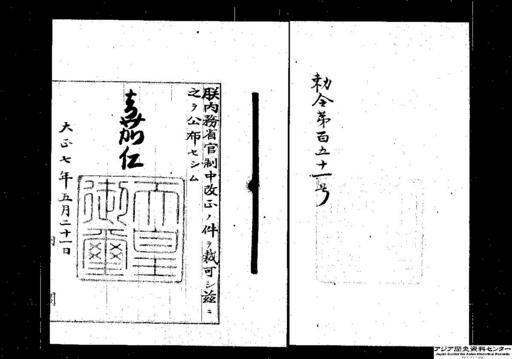 勅令第百五十一号
朕内務省官制中改正ノ件ヲ裁可シ茲ニ
之ヲ公布セシム
嘉仁
天皇
御璽
大正七年五月二十一日
アジア歴史資料センター
Japan Center for Asian Historical Records